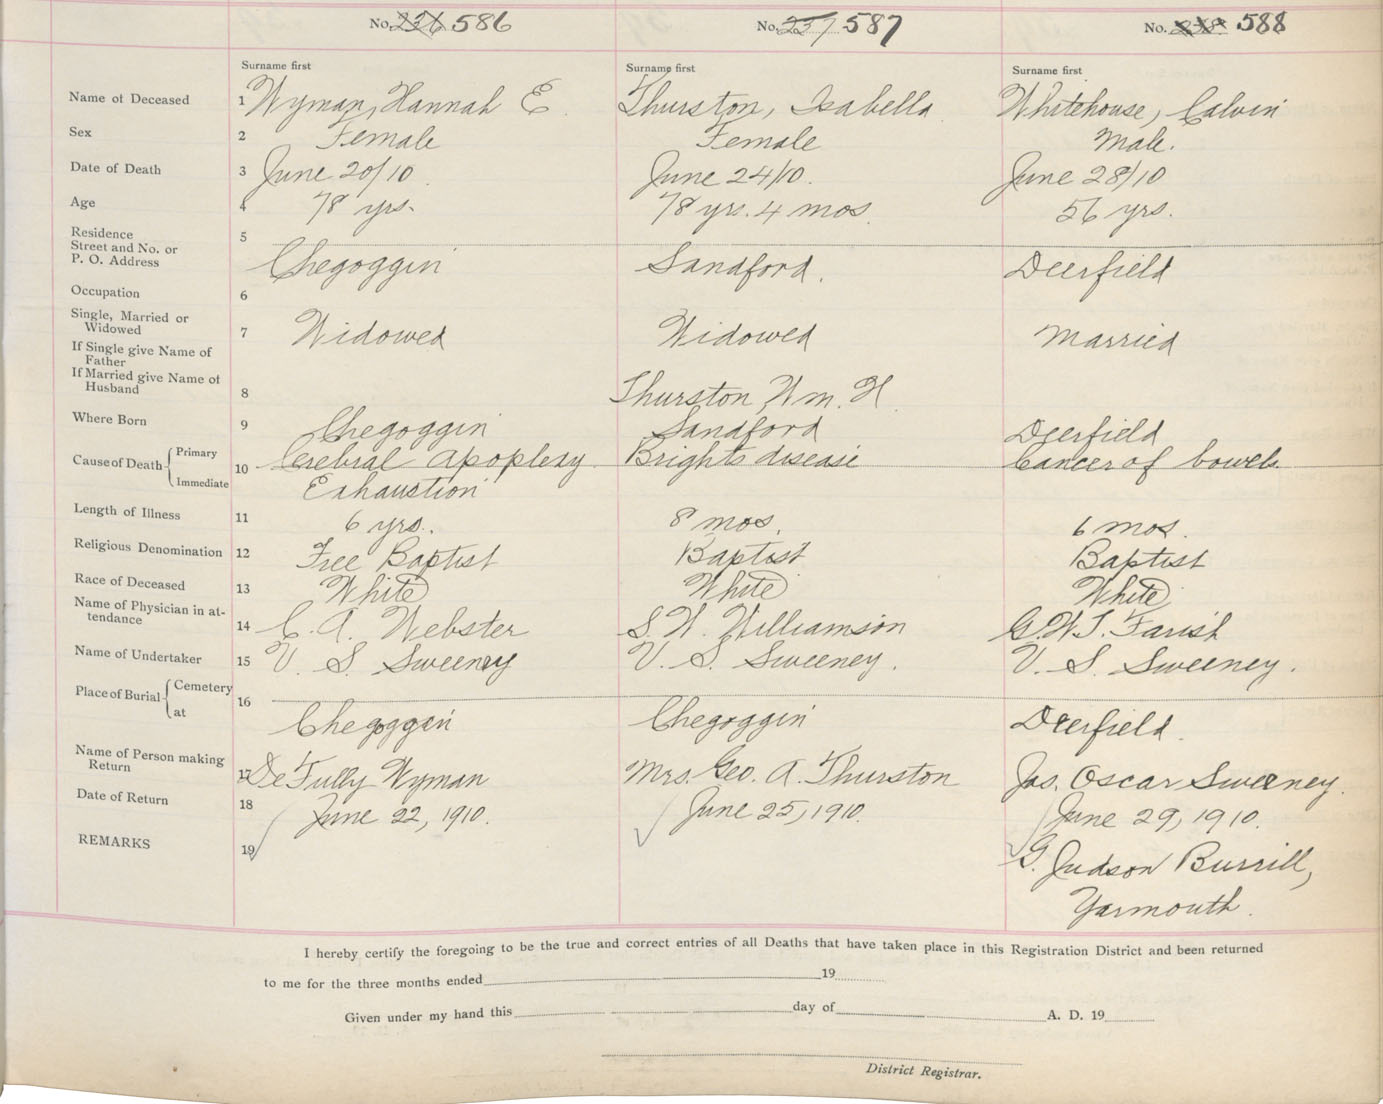 No. 236 586 No. 237 587 No. 238 588
Surname first Surname first Surname first
Name of Deceased 1 Wyman, Hannah E. Thurston, Isabella Whitehouse, Calvin
Sex 2 Female Female Male.
Date of Death 3 June 20/10 June 24/10. June 28/10
Age 4 78 yrs. 78 yrs. 4 mos. 56 yrs.
Residence 5
Street and No. or
P. O. Address Chegoggin Sandford. Deerfield
Occupation 6
Single, Married or
Widowed 7 Widowed Widowed Married
If Single give Name of
Father
If Married give Name of
Husband 8 Thurston Wm. H.
Where Born 9 Chegoggin Sandford Deerfield
Cause of Death Primary 10 Cerebral Apoplexy. Brights disease Cancer of bowels.
Immediate Exhaustion
Length of Illness 11 6 yrs. 8 mos. 6 mos.
Religious Denomination 12 Free Baptist Baptist Baptist
Race of Deceased 13 White White White
Name of Physician in at-
tendance 14 C. A. Webster S. W. Williamson G. W. T. Farish
Name of Undertaker 15 V. S. Sweeney V. S. Sweeney. V. S. Sweeney.
Place of Burial Cemetery 16
at Cheggogin Chegoggin Deerfield.
Name of Person making
Return 17 De Fully Wyman Mrs. Geo. A. Thurston Jas. Oscar Sweeney.
Date of Return 18 June 22, 1910. June 25, 1910. June 29, 1910.
REMARKS 19 G. Judson Burrill,
Yarmouth.
I hereby certify the foregoing to be the true and correct entries of all Deaths that have taken place in this Registration District and been returned
to me for the three months ended 19
Given under my hand this day of A. D. 19
District Registrar.